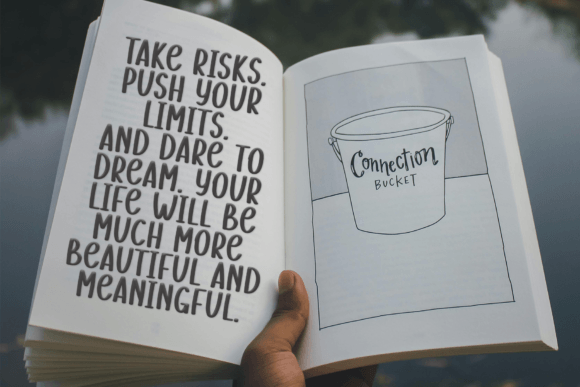 TAKE RISKS.
PUSH YOUR
LIMITS.
AND DARE TO
DREAM. YOUR
LIFE WILL BE
MUCH MORE
BEAUTIFUL AND
MEANINGFUL.
Connection
BUCKET